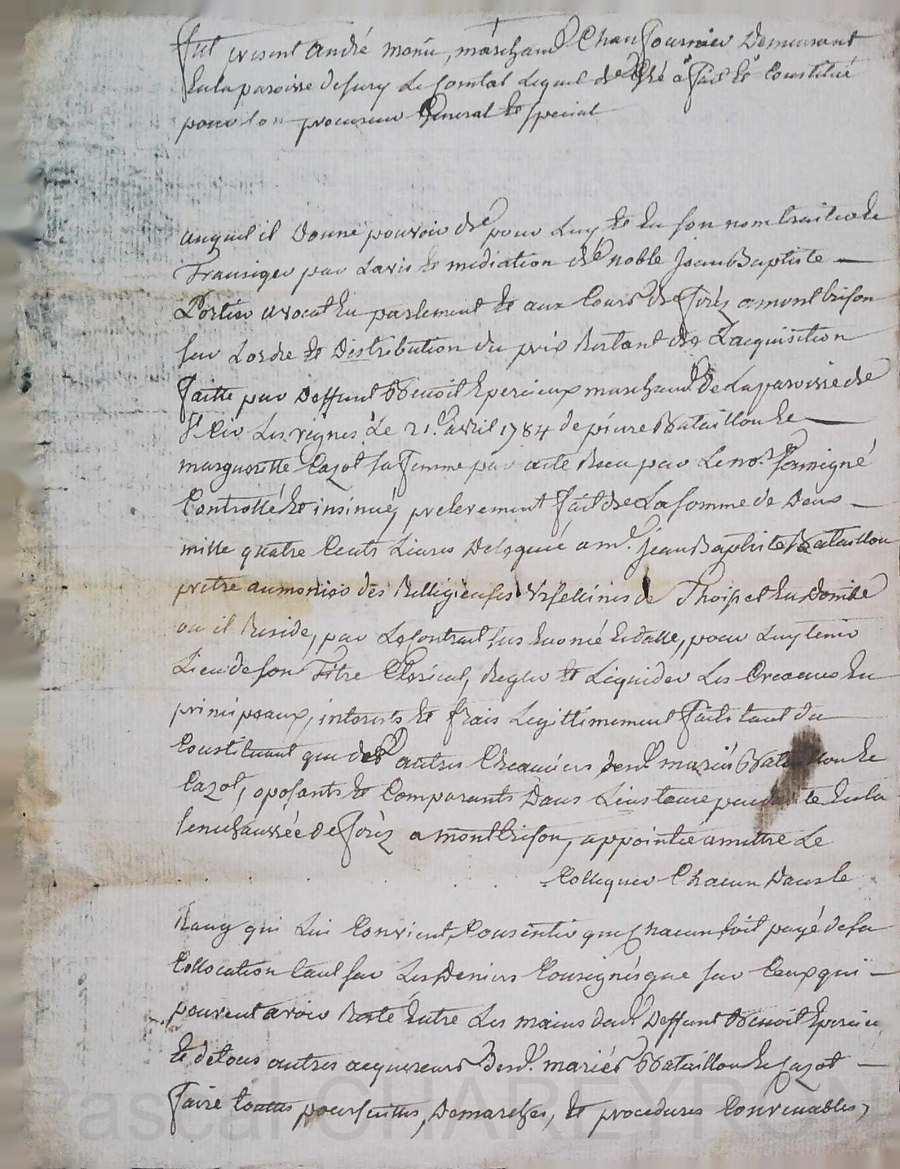 fut present andré monu, marchand Chaufournier Demeurant
En la paroisse de Sury Le Comtal Lequel de gré a fait et Constitué
pour son procureur General et special
auquel il Donne pouvoir de pour Luy et En son nom traiter et
Transiger par L'avis et mediation de noble Jean Baptiste —
Portier avocat En parlement et aux Cours de forêz a montbrison
sur L'ordre et Distribution du prix Restant de L'acquisition
faitte par Deffunt Benoit Epercieux marchand de La paroisse de
Les vignes Le 21e avril 1784 de pierre Bataillon et —
margueritte Cazot sa femme par acte Recu par Le no.re
Controllé et insinué, prelevement fait de La somme de Deux —
mille quatre Cents Livres Deleguée a m.r Jean Baptiste Bataillon
prêtre aumonier des Relligieuses Ursellines de Thoissei En Dombe
ou il Reside, par Le Contrat sus Enoncé Et datte, pour Luy tenir
Lieu de son Titre Clerical, Regler et Liquider Les Creances En
principeaux, interests et frais Legittimement faits tant du
Constituant que des autres Creanciers desd. mariés Bataillon et
Cazot, oposants et Comparants Dans L'instance pendante En la
senechaussée de forêz a montbrison, appointée a mettre Le
Colloquer Chacun Dans le
Rang qui Lui Convient, Consentir que Chacun soit payé de sa
Collocation tant sur Les Deniers Consignés que sur Ceux qui —
peuvent avoir Resté Entre Les mains dud. Deffunt Benoit Epercieu
et de tous autres acquereurs Desd. mariés Bataillon et Cazot —
faire toutes poursuittes, Demarches, et procedures Convenables,
Pascal CHAREYRON